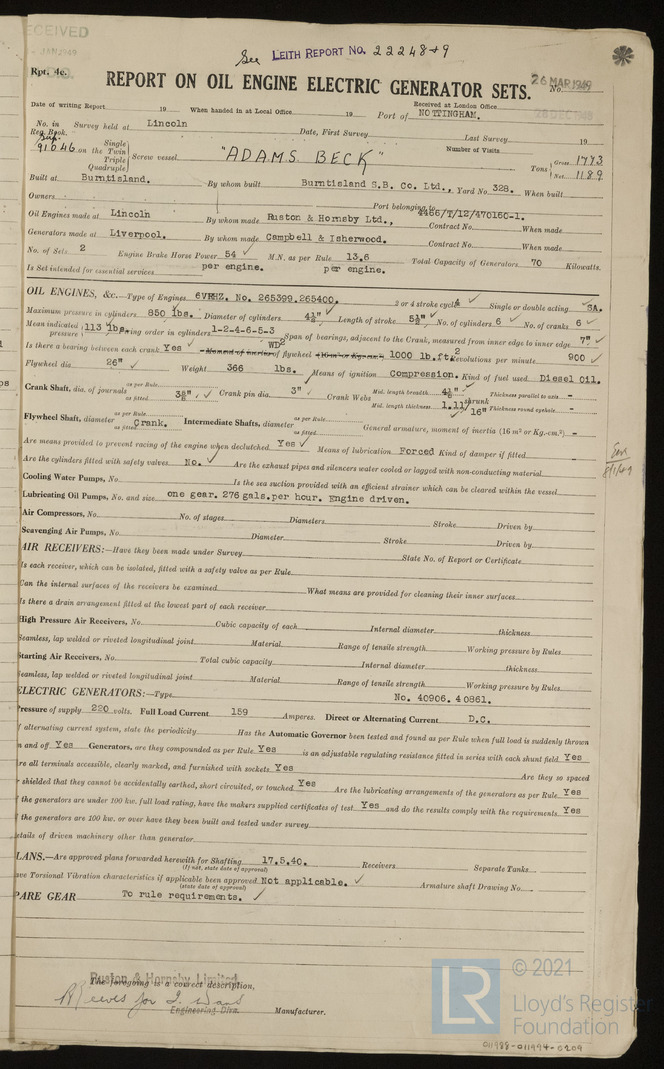 RECEIVED
JAN 1949
See LEITH REPORT NO. 22248+9
Rpt. 4c.
26 MAR 1949
REPORT ON OIL ENGINE ELECTRIC GENERATOR SETS. No.
28 DEC 1948
Date of writing Report 19 When handed in at Local Office 19 Received at London Office
Port of NOTTINGHAM.
No. in Reg. Book. Survey held at Lincoln Date, First Survey Last Survey 19
Number of Visits
91046 on the Single Twin Triple Quadruple Screw vessel "ADAMS BECK" Tons Gross 1773 Net 1189
Built at Burntisland. By whom built Burntisland S.B. Co. Ltd., Yard No. 328. When built
Owners Port belonging to
Oil Engines made at Lincoln By whom made Ruston & Hornsby Ltd., Contract No. 4466/T/12/470160-1. When made
Generators made at Liverpool. By whom made Campbell & Isherwood. Contract No. When made
No. of Sets 2 Engine Brake Horse Power 54 M.N. as per Rule 13.6 Total Capacity of Generators 70 Kilowatts.
Is Set intended for essential services per engine. per engine.
OIL ENGINES, &c.—Type of Engines 6VRHZ. No. 265399.265400. 2 or 4 stroke cycle 4 Single or double acting SA.
Maximum pressure in cylinders 850 lbs. Diameter of cylinders 4½" Length of stroke 5½" No. of cylinders 6 No. of cranks 6
Mean indicated pressure 113 lbs. Firing order in cylinders 1-2-4-6-5-3 Span of bearings, adjacent to the Crank, measured from inner edge to inner edge 7"
Is there a bearing between each crank Yes Moment of inertia of flywheel (16 m² or Kg.-cm.²) WD² 1000 lb.ft.² Revolutions per minute 900
Flywheel dia. 26" Weight 366 lbs. Means of ignition Compression. Kind of fuel used Diesel Oil.
Crank Shaft, dia. of journals as per Rule as fitted Crank pin dia. 3" Crank Webs Mid. length breadth Mid. length thickness shrunk Thickness parallel to axis - Thickness round eyehole -
Flywheel Shaft, diameter as per Rule as fitted Crank. Intermediate Shafts, diameter as per Rule as fitted General armature, moment of inertia (16 m² or Kg.-cm.²) -
Are means provided to prevent racing of the engine when declutched Yes Means of lubrication Forced Kind of damper if fitted
Are the cylinders fitted with safety valves No. Are the exhaust pipes and silencers water cooled or lagged with non-conducting material
Cooling Water Pumps, No. Is the sea suction provided with an efficient strainer which can be cleared within the vessel
Lubricating Oil Pumps, No. and size one gear. 276 gals.per hour. Engine driven.
Air Compressors, No. No. of stages Diameters Stroke Driven by
Scavenging Air Pumps, No. Diameter Stroke Driven by
AIR RECEIVERS:—Have they been made under Survey State No. of Report or Certificate
Is each receiver, which can be isolated, fitted with a safety valve as per Rule
Can the internal surfaces of the receivers be examined What means are provided for cleaning their inner surfaces
Is there a drain arrangement fitted at the lowest part of each receiver
High Pressure Air Receivers, No. Cubic capacity of each Internal diameter thickness
Seamless, lap welded or riveted longitudinal joint Material Range of tensile strength Working pressure by Rules
Starting Air Receivers, No. Total cubic capacity Internal diameter thickness
Seamless, lap welded or riveted longitudinal joint Material Range of tensile strength Working pressure by Rules
ELECTRIC GENERATORS:—Type No. 40906. 40861.
Pressure of supply 220 volts. Full Load Current 159 Amperes. Direct or Alternating Current D.C.
If alternating current system, state the periodicity Has the Automatic Governor been tested and found as per Rule when full load is suddenly thrown
on and off Yes Generators, are they compounded as per Rule Yes is an adjustable regulating resistance fitted in series with each shunt field Yes
Are all terminals accessible, clearly marked, and furnished with sockets Yes Are they so spaced
or shielded that they cannot be accidentally earthed, short circuited, or touched Yes Are the lubricating arrangements of the generators as per Rule Yes
If the generators are under 100 kw. full load rating, have the makers supplied certificates of test Yes and do the results comply with the requirements Yes
If the generators are 100 kw. or over have they been built and tested under survey
Details of driven machinery other than generator
PLANS.—Are approved plans forwarded herewith for Shafting 17.5.40. Receivers Separate Tanks
(If not, state date of approval)
Have Torsional Vibration characteristics if applicable been approved Not applicable. Armature shaft Drawing No.
(state date of approval)
SPARE GEAR To rule requirements.
Ruston & Hornsby Limited
The foregoing is a correct description,
Engineering Divn. Manufacturer.
LR © 2021
Lloyd's Register
Foundation
011988-011994-0209